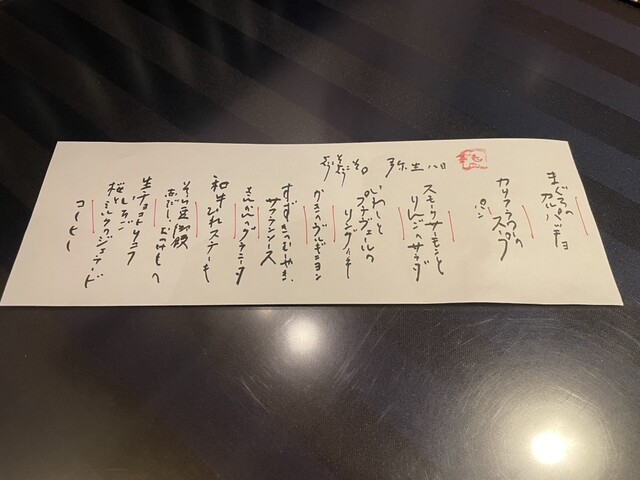 まぐろの
カルパッチョ
カリフラワーの
スープ
パン
スモークサーモンと
りんごのサラダ
いわしと
プチヴェールの
リングイネ
かきのブルギニヨン
すずきのむしやき、
サフランソース
きんかんのグラニータ
和牛ひれステーキ
そら豆御飯
赤だし、おつけもの
生チョコトリュフ
桜といちご
ミルクジェラード
コーヒー
弥生八日